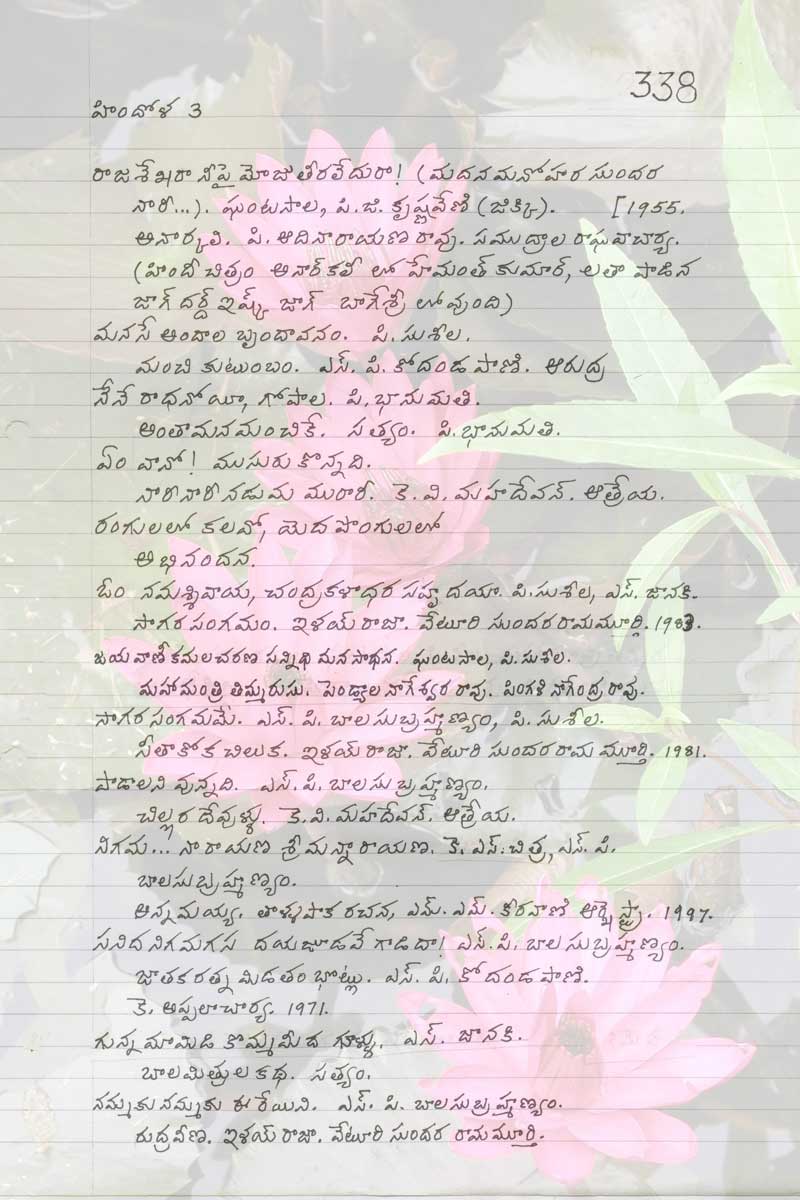 338
హిందోళ 3
రాజశేఖరా నీపై మోజు తీరలేదురా! (మదన మనోహర సుందర
నారీ...). ఘంటసాల, పి.జి. కృష్ణవేణి (జిక్కి). [1955.
అనార్కలి. పి. ఆదినారాయణ రావు. సముద్రాల రాఘవాచార్య.
(హిందీ చిత్రం అనార్కలీ లో హేమంత్ కుమార్, లతా పాడిన
జాగ్ దర్ద్ ఇష్క్ జాగ్ బాగేశ్రీ లోవుంది)
మనసే అందాల బృందావనం. పి. సుశీల.
మంచి కుటుంబం. ఎస్. పి. కోదండపాణి. ఆరుద్ర
నేనే రాధనోయీ, గోపాల. పి. భానుమతి.
అంతామనమంచికే. సత్యం. పి. భానుమతి.
ఏం వానో! ముసురుకొన్నది.
నారీ నారీ నడుమ మురారీ. కె. వి. మహదేవన్. ఆత్రేయ.
రంగులలో కలవో, యెదపొంగులలో
అభినందన.
ఓం నమశ్శివాయ, చంద్రకళాధర సహృదయా. పి.సుశీల, ఎస్. జానకి.
సాగర సంగమం. ఇళయ్ రాజా. వేటూరి సుందరరామమూర్తి. 1983.
జయవాణీ కమలచరణ సన్నిధి మన సాధన. ఘంటసాల, పి.సుశీల.
మహామంత్రి తిమ్మరుసు. పెండ్యాల నాగేశ్వర రావు. పింగళి నాగేంద్ర రావు.
సాగర సంగమమే. ఎస్. పి. బాలసుబ్రహ్మణ్యం, పి. సుశీల.
సీతాకోక చిలుక. ఇళయ్ రాజా. వేటూరి సుందరరామ మూర్తి. 1981.
పాడాలని వున్నది. ఎస్. పి. బాలసుబ్రహ్మణ్యం.
చిల్లర దేవుళ్ళు. కె. వి. మహదేవన్. ఆత్రేయ.
నిగమ... నారాయణ శ్రీమన్నారాయణ. కె. ఎస్. చిత్ర, ఎస్. పి.
బాలసుబ్రహ్మణ్యం.
అన్నమయ్య. తాళ్ళపాక రచన, ఎమ్. ఎమ్. కీరవాణి ఆర్కెస్ట్రా. 1997.
సనిదనిగమగస దయజూడవే గాడిదా! ఎస్. పి. బాలసుబ్రహ్మణ్యం.
జాతకరత్న మిడతంభొట్లు. ఎస్. పి. కోదండపాణి.
కె. అప్పలాచార్య. 1971.
గున్న మామిడి కొమ్మమీద గూళ్ళు. ఎస్. జానకి.
బాలమిత్రుల కథ. సత్యం.
నమ్మకు నమ్మకు ఈ రేయిని. ఎస్. పి. బాలసుబ్రహ్మణ్యం.
రుద్రవీణ. ఇళయ్ రాజా. వేటూరి సుందర రామమూర్తి.